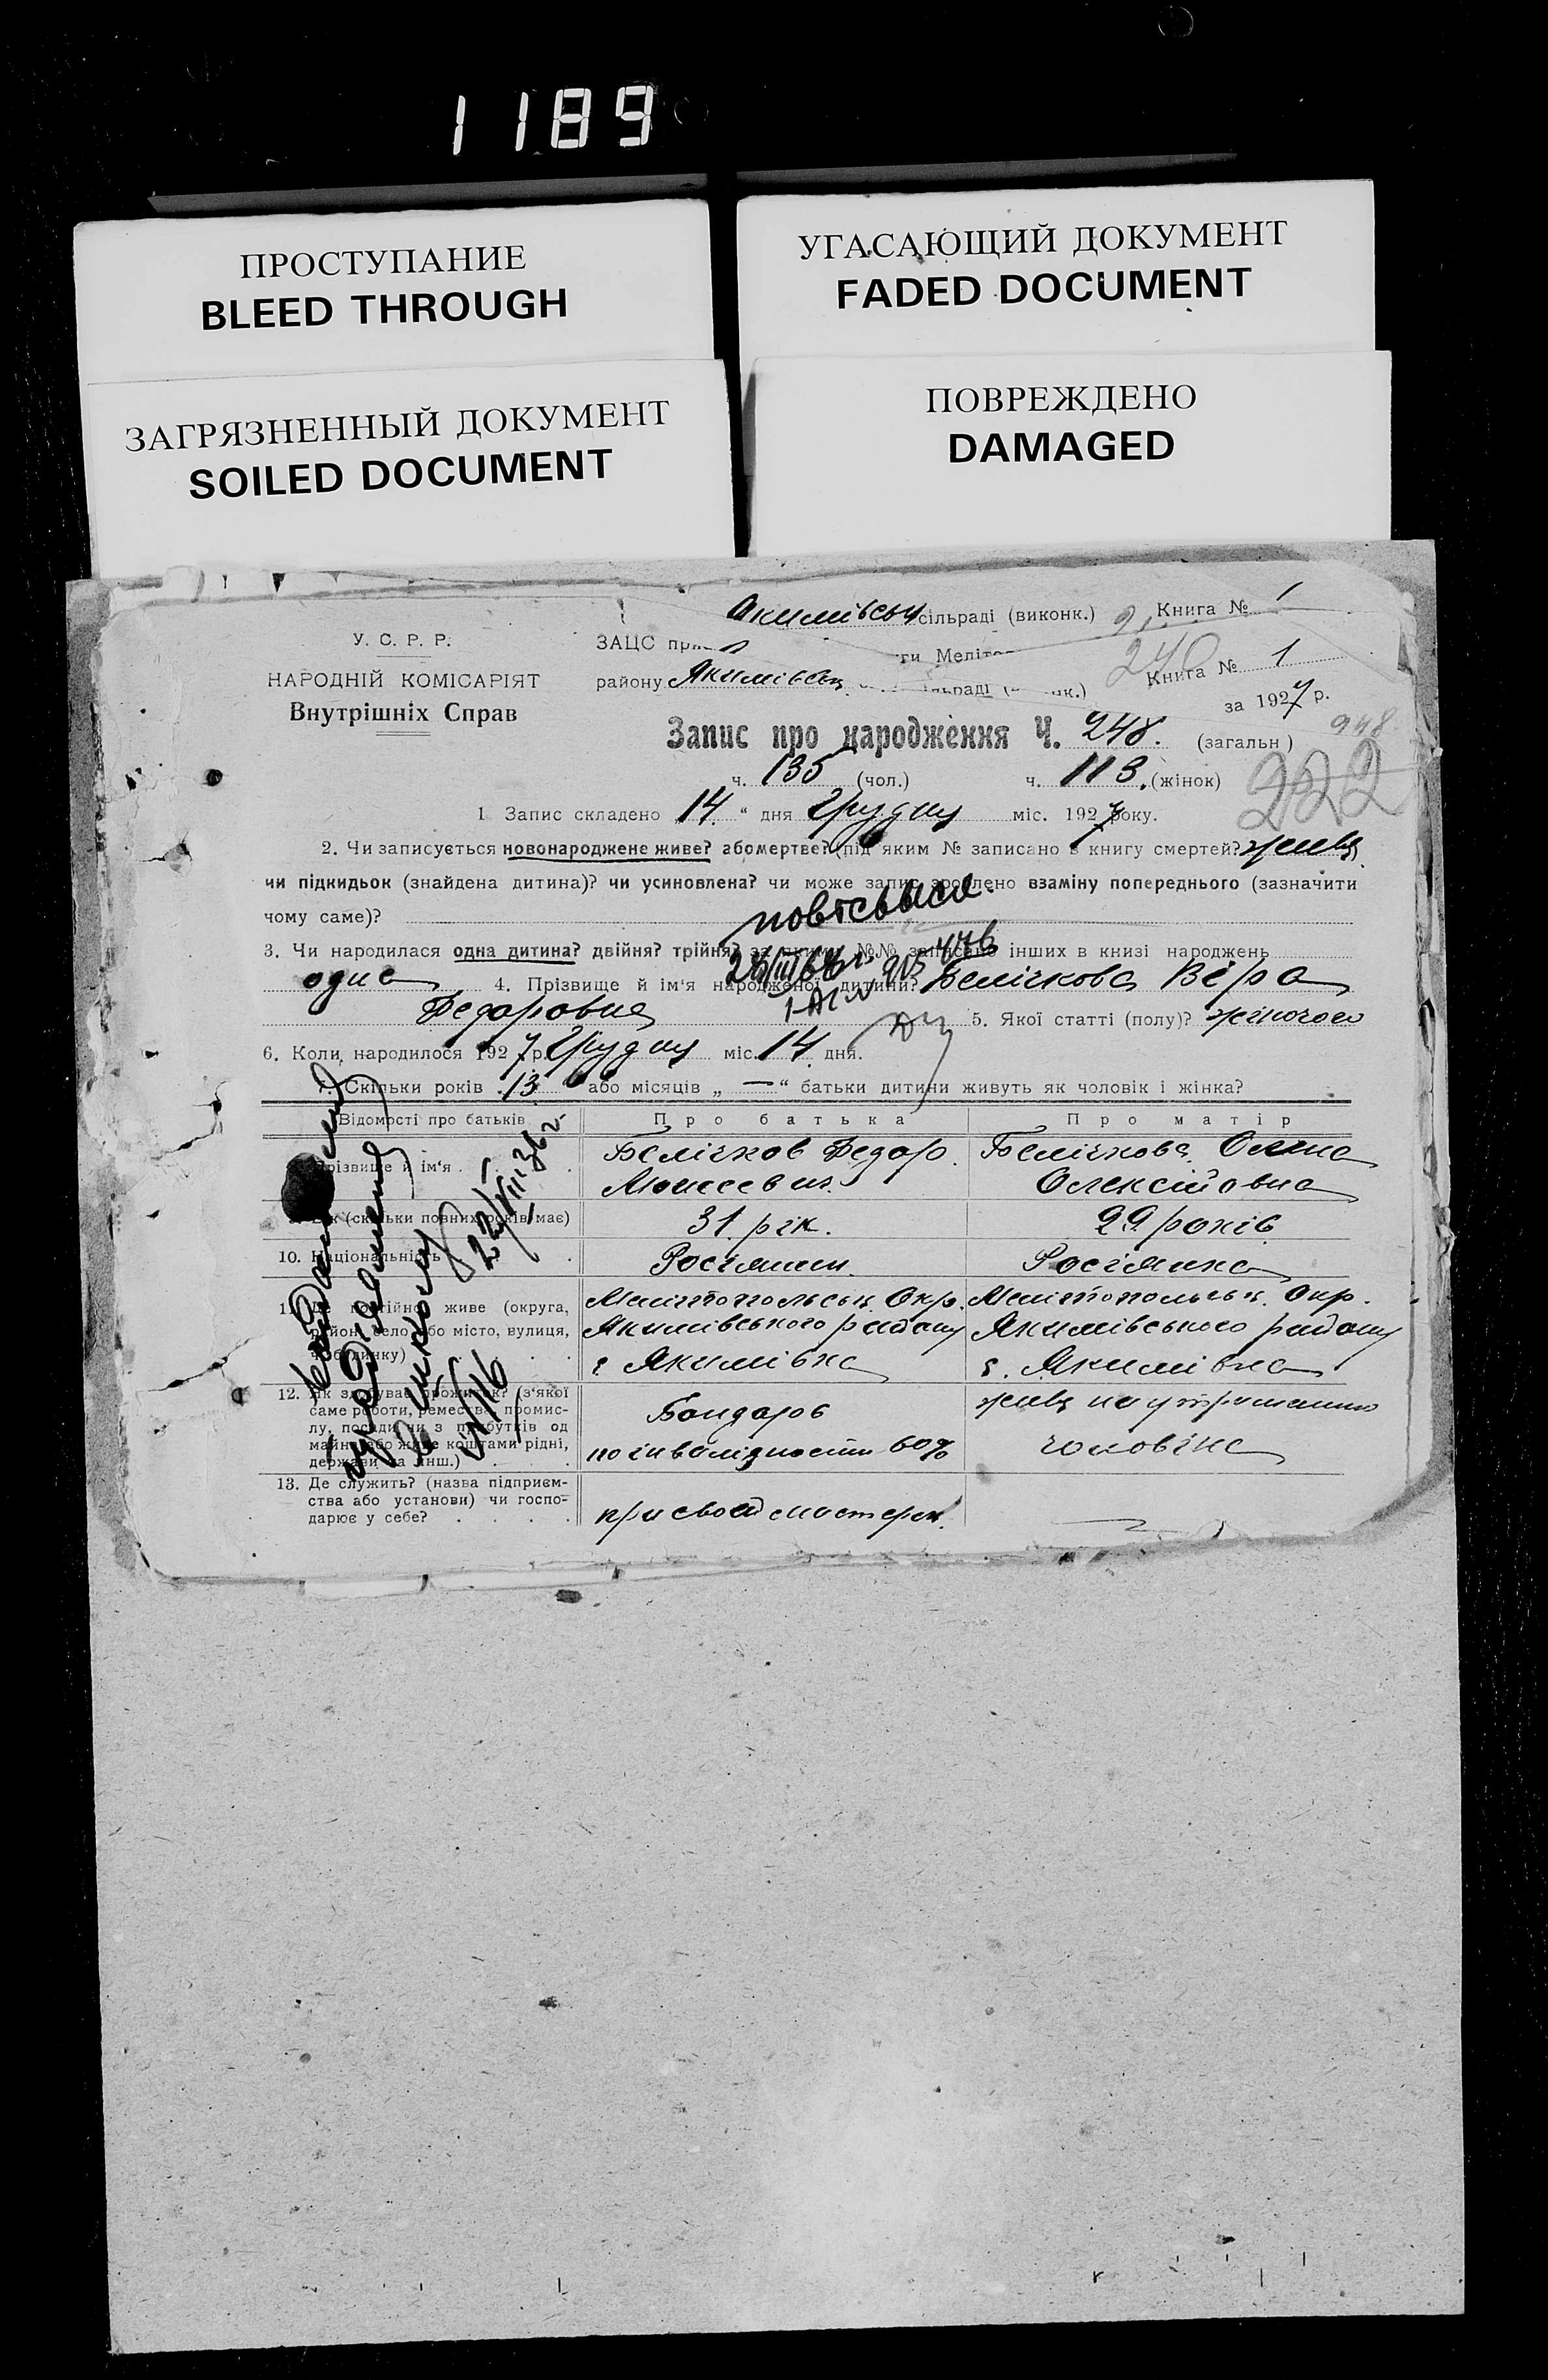 1189
ПРОСТУПАНИЕ
BLEED THROUGH
УГАСАЮЩИЙ ДОКУМЕНТ
FADED DOCUMENT
ЗАГРЯЗНЕННЫЙ ДОКУМЕНТ
SOILED DOCUMENT
ПОВРЕЖДЕНО
DAMAGED
Якимівськ сільраді (виконк.) Книга № 1
У. С. Р. Р.
ЗАЦС при
ги Меліто
240
Книга № 1
НАРОДНІЙ КОМІСАРІЯТ
району Якимівськ
Внутрішніх Справ
за 1927 р.
Запис про народження Ч. 248. (загальн)
948
ч. 135 (чол.) ч. 113. (жінок)
222
1. Запис складено „14“ дня Грудня міс. 1927 року.
2. Чи записується новонароджене живе? або мертве? (під яким № записано в книгу смертей?) живе
чи підкидьок (знайдена дитина)? чи усиновлена? чи може запис зроблено взаміну попереднього (зазначити
чому саме)?
3. Чи народилася одна дитина? двійня? трійня? за якими №№ записано інших в книзі народжень
одна 4. Прізвище й ім'я народженої дитини? Бєлічкова Вєра
Федоровна 5. Якої статті (полу)? жіночого
6. Коли народилося 1927 р. Грудня міс. 14 дня.
7. Скільки років 13 або місяців „ — “ батьки дитини живуть як чоловік і жінка?
Відомості про батьків Про батька Про матір
Прізвище й ім'я . Бєлічков Федор Бєлічкова Олена
Моисеевич Олексійовна
Вік (скільки повних років має) 31 рік. 29 років
10. Національність Росіянин. Росіянка
11. Де постійно живе (округа, Мелітопольськ. Окр. Мелітопольськ. Окр.
район, село або місто, вулиця, Якимівського району Якимівського району
ч. будинку) с. Якимівка с. Якимівка
12. Як здобуває прожиток? (з'якої
саме роботи, ремества, промис-
лу, посади чи з прибутків од
майна або живе коштами рідні,
держави та інш.)
Бондарь
по інвалідности 60%
живе на утриманню
чоловіка
13. Де служить? (назва підприєм-
ства або установи) чи госпо-
дарює у себе?
при своей мастерск.